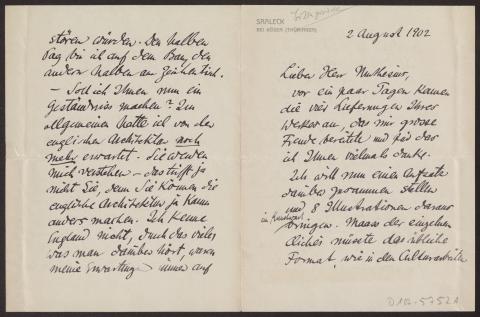 SAALECK
BEI KÖSEN (THÜRINGEN)
2 August 1902
Lieber Herr Muthesius,
vor ein paar Tagen kamen
die vier Lieferungen Ihres
Werkes an, das mir grosse
Freude bereitete und für das
ich Ihnen vielmals danke.
Ich will nun einen Aufsatz
darüber zusammen stellen
und 8 Illustrationen daraus
im Kunstwart
bringen. Maass der einzelnen
Clichés müsste das übliche
Format, wie in den Culturarbeiten
D 102-5752 A
stören würden. Den halben
Tag bin ich auf dem Bau, den
andern halben am Zeichentisch.
— Soll ich Ihnen nun ein
Geständniss machen? Im
allgemeinen hatte ich von der
englischen Architektur noch
mehr erwartet. Sie werden
mich verstehen — das trifft ja
nicht Sie, denn Sie können die
englische Architektur ja kaum
anders machen. Ich kenne
England nicht, durch das viele,
was man darüber hört, waren
meine Erwartung immer auf